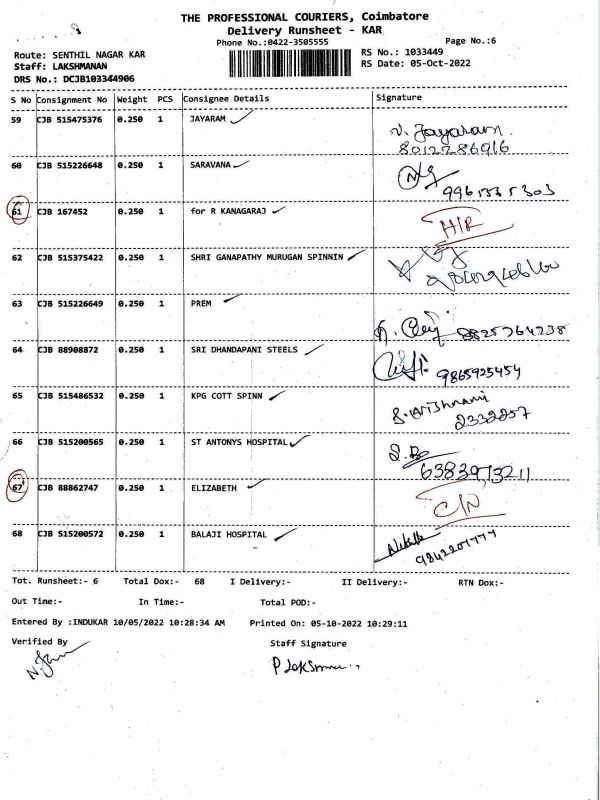 THE PROFESSIONAL COURIERS, Coimbatore
Delivery Runsheet - KAR
Phone No.:0422-3505555
Page No.:6
Route: SENTHIL NAGAR KAR
RS No.: 1033449
Staff: LAKSHMANAN
RS Date: 05-Oct-2022
DRS No.: DCJB103344906
S No Consignment No Weight PCS Consignee Details Signature
59 CJB 515475376 0.250 1 JAYARAM V. Jayaram
8012286916
60 CJB 515226648 0.250 1 SARAVANA
61 CJB 167452 0.250 1 for R KANAGARAJ H/R
62 CJB 515375422 0.250 1 SHRI GANAPATHY MURUGAN SPINNIN
63 CJB 515226649 0.250 1 PREM
8825764238
64 CJB 88908872 0.250 1 SRI DHANDAPANI STEELS
9865925454
65 CJB 515486532 0.250 1 KPG COTT SPINN
66 CJB 515200565 0.250 1 ST ANTONYS HOSPITAL
6383973211
67 CJB 88862747 0.250 1 ELIZABETH C/N
68 CJB 515200572 0.250 1 BALAJI HOSPITAL
Tot. Runsheet:- 6 Total Dox:- 68 I Delivery:- II Delivery:- RTN Dox:-
Out Time:- In Time:- Total POD:-
Entered By :INDUKAR 10/05/2022 10:28:34 AM Printed On: 05-10-2022 10:29:11
Verified By Staff Signature